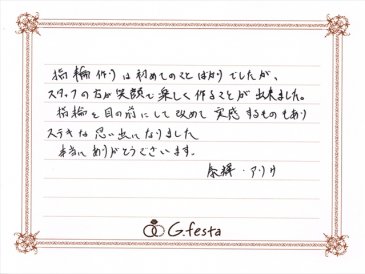 指輪作りは初めてのことばかりでしたが、
スタッフの方が笑顔で楽しく作ることが出来ました。
指輪を目の前にして改めて実感するものもあり
ステキな思い出になりました
本当にありがとうございます。
・アリサ
G.festa